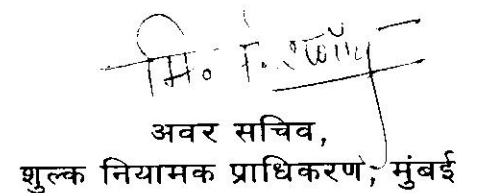 अवर सचिव,
शुल्क नियामक प्राधिकरण, मुंबई